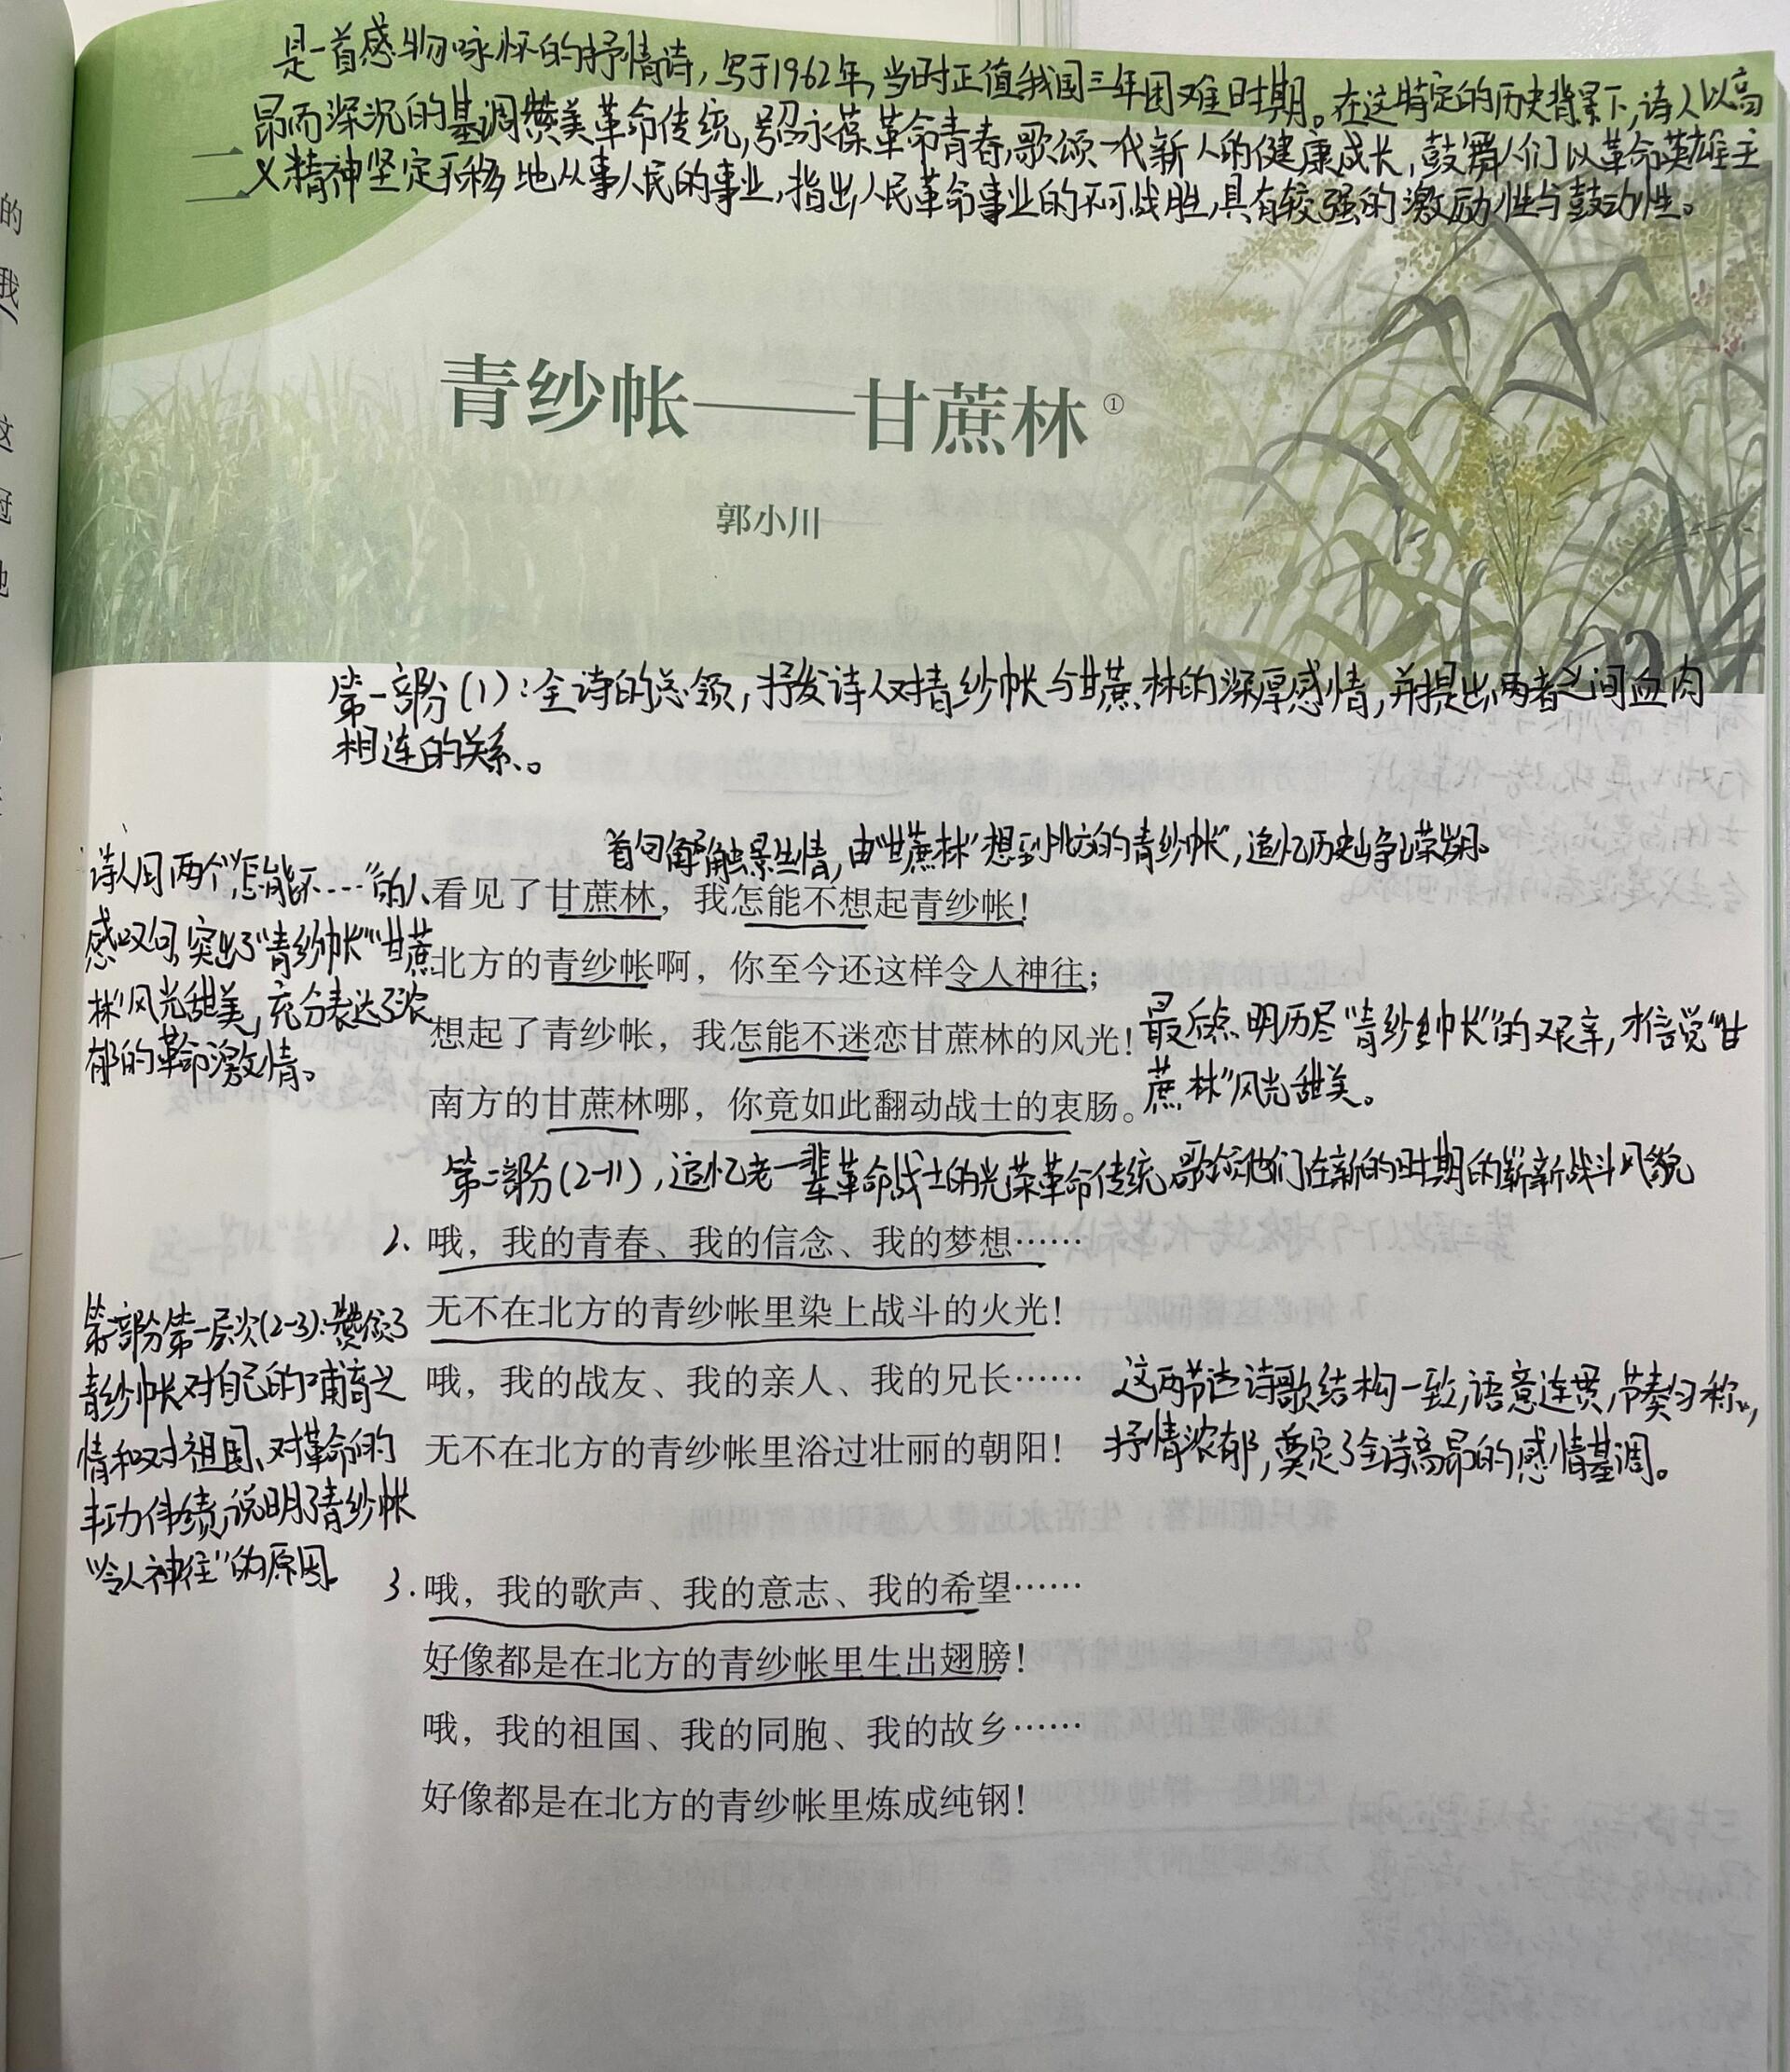 是一首感物咏怀的抒情诗，写于1962年，当时正值我国三年困难时期。在这特定的历史背景下，诗人以高
昂而深沉的基调赞美革命传统，号召永葆革命青春，歌颂一代新人的健康成长，鼓舞人们以革命英雄主
义精神坚定不移地从事人民的事业，指出人民革命事业的不可战胜，具有较强的激励性与鼓动性。
二
青纱帐——甘蔗林①
郭小川
第一部分(1)：全诗的总领，抒发诗人对青纱帐与甘蔗林的深厚感情，并提出两者之间血肉
相连的关系。
首句触景生情，由"甘蔗林"想到北方的青纱帐"，追忆历史峥嵘岁月。
诗人用两个"怎能不……"的
感叹句，突出了"青纱帐""甘蔗
林"风光甜美，充分表达了浓
郁的革命激情。
1、看见了甘蔗林，我怎能不想起青纱帐！
北方的青纱帐啊，你至今还这样令人神往；
想起了青纱帐，我怎能不迷恋甘蔗林的风光！
南方的甘蔗林哪，你竟如此翻动战士的衷肠。
最后点明历尽"青纱帐"的艰辛，才倍觉"甘
蔗林"风光甜美。
第二部分(2-11)，追忆老一辈革命战士的光荣革命传统，歌颂他们在新的时期的崭新战斗风貌
2、哦，我的青春、我的信念、我的梦想……
无不在北方的青纱帐里染上战斗的火光！
哦，我的战友、我的亲人、我的兄长……
无不在北方的青纱帐里浴过壮丽的朝阳！
第二部分第一层次(2-3)：赞颂了
青纱帐对自己的哺育之
情和对祖国、对革命的
丰功伟绩，说明了青纱帐
"令人神往"的原因。
这两节诗歌结构一致，语意连贯，节奏匀称，
抒情浓郁，奠定了全诗高昂的感情基调。
3.哦，我的歌声、我的意志、我的希望……
好像都是在北方的青纱帐里生出翅膀！
哦，我的祖国、我的同胞、我的故乡……
好像都是在北方的青纱帐里炼成纯钢！